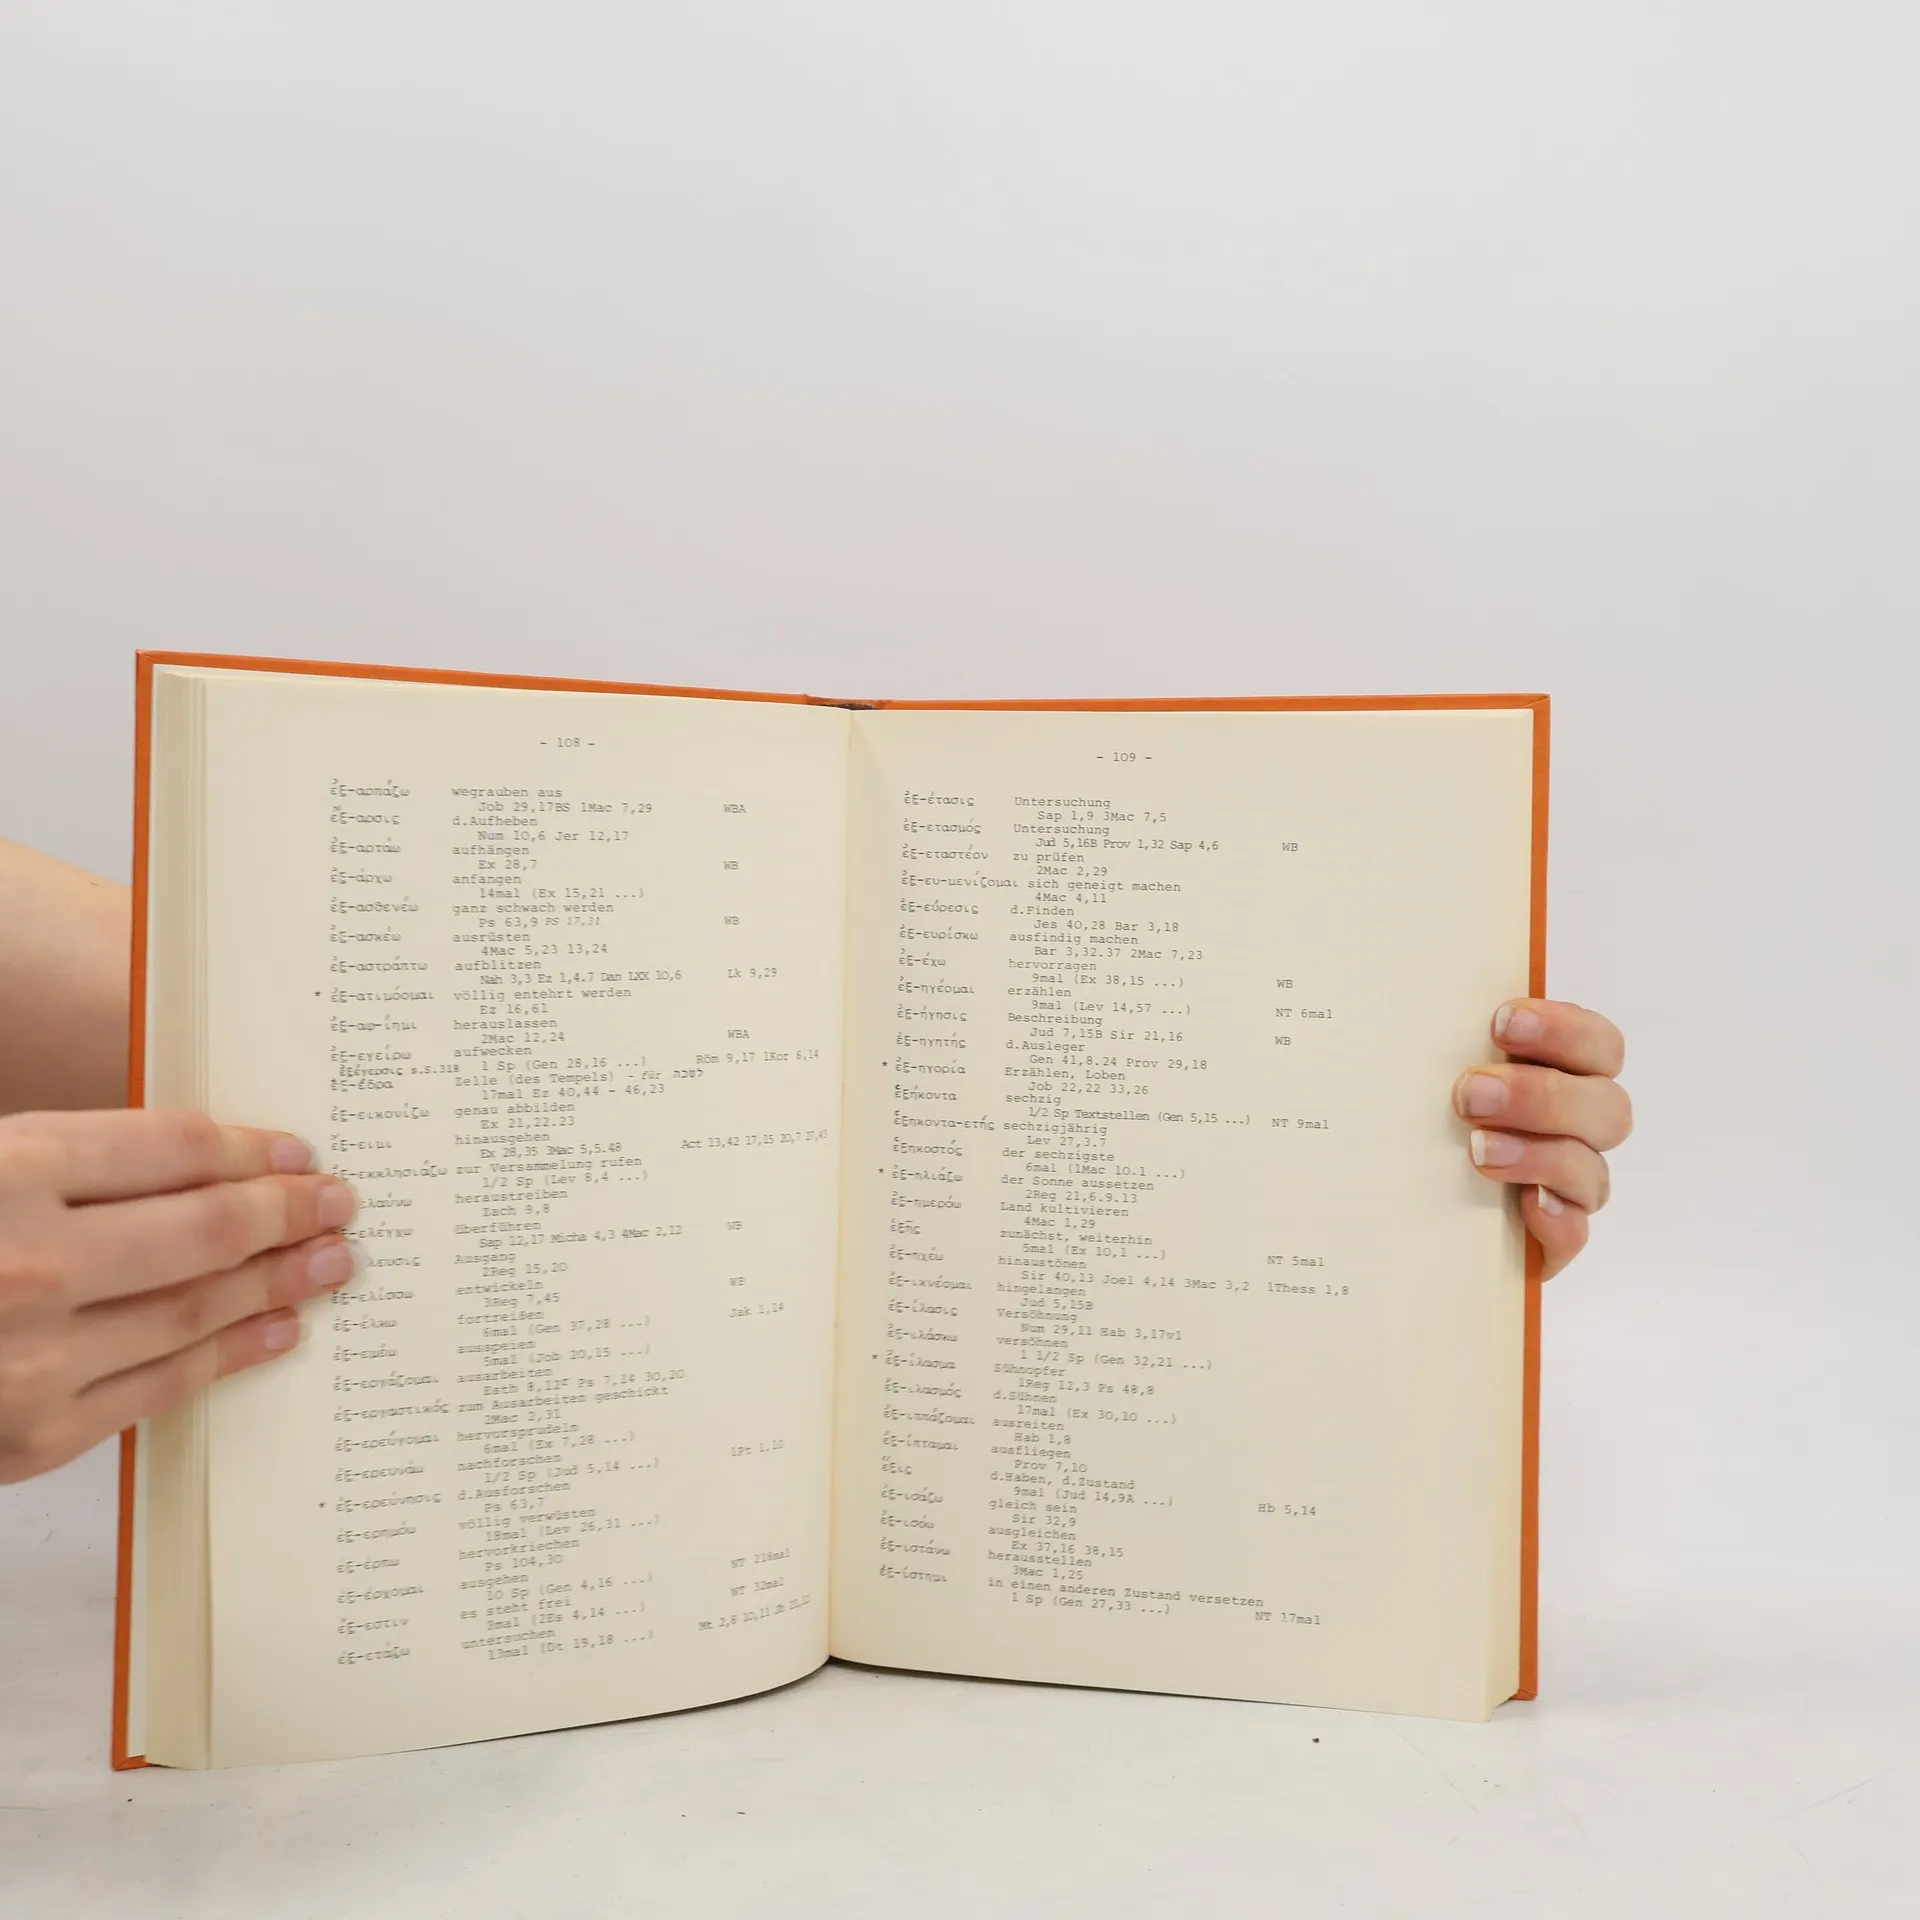 - 108 -
ἐξ-αρπάζω wegrauben aus
Job 29,17BS 1Mac 7,29 WBA
ἔξ-αρσις d.Aufheben
Num 10,6 Jer 12,17
ἐξ-αρτάω aufhängen
Ex 28,7 WB
ἐξ-άρχω anfangen
14mal (Ex 15,21 ...)
ἐξ-ασθενέω ganz schwach werden
Ps 63,9 PS 17,31 WB
ἐξ-ασκέω ausrüsten
4Mac 5,23 13,24
ἐξ-αστράπτω aufblitzen
Nah 3,3 Ez 1,4.7 Dan LXX 10,6 Lk 9,29
* ἐξ-ατιμόομαι völlig entehrt werden
Ez 16,61
ἐξ-αφ-ίημι herauslassen
2Mac 12,24 WBA
ἐξ-εγείρω aufwecken
ἐξέγερσις s.S.318 1 Sp (Gen 28,16 ...) Röm 9,17 1Kor 6,14
ἐξ-έδρα Zelle (des Tempels) - für לשכה
17mal Ez 40,44 - 46,23
ἐξ-εικονίζω genau abbilden
Ex 21,22.23
ἔξ-ειμι hinausgehen
Ex 28,35 3Mac 5,5.48 Act 13,42 17,15 20,7 27,43
ἐξ-εκκλησιάζω zur Versammelung rufen
1/2 Sp (Lev 8,4 ...)
ελαύνω heraustreiben
Zach 9,8
-ελέγχω überführen
Sap 12,17 Micha 4,3 4Mac 2,12 WB
λευσις Ausgang
2Reg 15,20
ἐξ-ελίσσω entwickeln
3Reg 7,45 WB
ἐξ-έλκω fortreißen
6mal (Gen 37,28 ...) Jak 1,14
ἐξ-εμέω ausspeien
5mal (Job 20,15 ...)
ἐξ-εργάζομαι ausarbeiten
Esth 8,12r Ps 7,14 30,20
ἐξ-εργαστικός zum Ausarbeiten geschickt
2Mac 2,31
ἐξ-ερεύγομαι hervorsprudeln
6mal (Ex 7,28 ...)
ἐξ-ερευνάω nachforschen
1/2 Sp (Jud 5,14 ...) 1Pt 1,10
* ἐξ-ερεύνησις d.Ausforschen
Ps 63,7
ἐξ-ερημόω völlig verwüsten
18mal (Lev 26,31 ...)
ἐξ-έρπω hervorkriechen
Ps 104,30
ἐξ-έρχομαι ausgehen
10 Sp (Gen 4,16 ...) NT 218mal
ἔξ-εστιν es steht frei
9mal (2Es 4,14 ...) NT 32mal
ἐξ-ετάζω untersuchen
13mal (Dt 19,18 ...) Mt 2,8 10,11 Jh 21,12
- 109 -
ἐξ-έτασις Untersuchung
Sap 1,9 3Mac 7,5
ἐξ-ετασμός Untersuchung
Jud 5,16B Prov 1,32 Sap 4,6 WB
ἐξ-εταστέον zu prüfen
2Mac 2,29
ἐξ-ευ-μενίζομαι sich geneigt machen
4Mac 4,11
ἐξ-εύρεσις d.Finden
Jes 40,28 Bar 3,18
ἐξ-ευρίσκω ausfindig machen
Bar 3,32.37 2Mac 7,23
ἐξ-έχω hervorragen
9mal (Ex 38,15 ...) WB
ἐξ-ηγέομαι erzählen
9mal (Lev 14,57 ...) NT 6mal
ἐξ-ήγησις Beschreibung
Jud 7,15B Sir 21,16 WB
ἐξ-ηγητής d.Ausleger
Gen 41,8.24 Prov 29,18
* ἐξ-ηγορία Erzählen, Loben
Job 22,22 33,26
ἑξήκοντα sechzig
1/2 Sp Textstellen (Gen 5,15 ...) NT 9mal
ἑξηκοντα-ετής sechzigjährig
Lev 27,3.7
ἑξηκοστός der sechzigste
6mal (1Mac 10.1 ...)
* ἐξ-ηλιάζω der Sonne aussetzen
2Reg 21,6.9.13
ἐξ-ημερόω Land kultivieren
4Mac 1,29
ἑξῆς zunächst, weiterhin
5mal (Ex 10,1 ...) NT 5mal
ἐξ-ηχέω hinaustönen
Sir 40,13 Joel 4,14 3Mac 3,2 1Thess 1,8
ἐξ-ικνέομαι hingelangen
Jud 5,15B
ἐξ-ίλασις Versöhnung
Num 29,11 Hab 3,17vl
ἐξ-ιλάσκω versöhnen
1 1/2 Sp (Gen 32,21 ...)
* ἐξ-ίλασμα Sühnopfer
1Reg 12,3 Ps 48,8
ἐξ-ιλασμός d.Sühnen
17mal (Ex 30,10 ...)
ἐξ-ιππάζομαι ausreiten
Hab 1,8
ἐξ-ίπταμαι ausfliegen
Prov 7,10
ἕξις d.Haben, d.Zustand
9mal (Jud 14,9A ...) Hb 5,14
ἐξ-ισάζω gleich sein
Sir 32,9
ἐξ-ισόω ausgleichen
Ex 37,16 38,15
ἐξ-ιστάνω herausstellen
3Mac 1,25
ἐξ-ίστημι in einen anderen Zustand versetzen
1 Sp (Gen 27,33 ...) NT 17mal